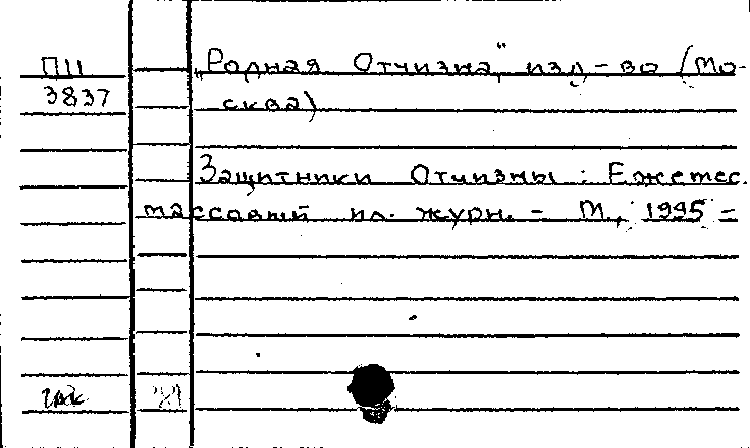 П11
3837
„Родная Отчизна", изд-во (Мо-
сква)
Защитники Отчизны : Ежемес.
массовый ил. журн. - М., 1995 -